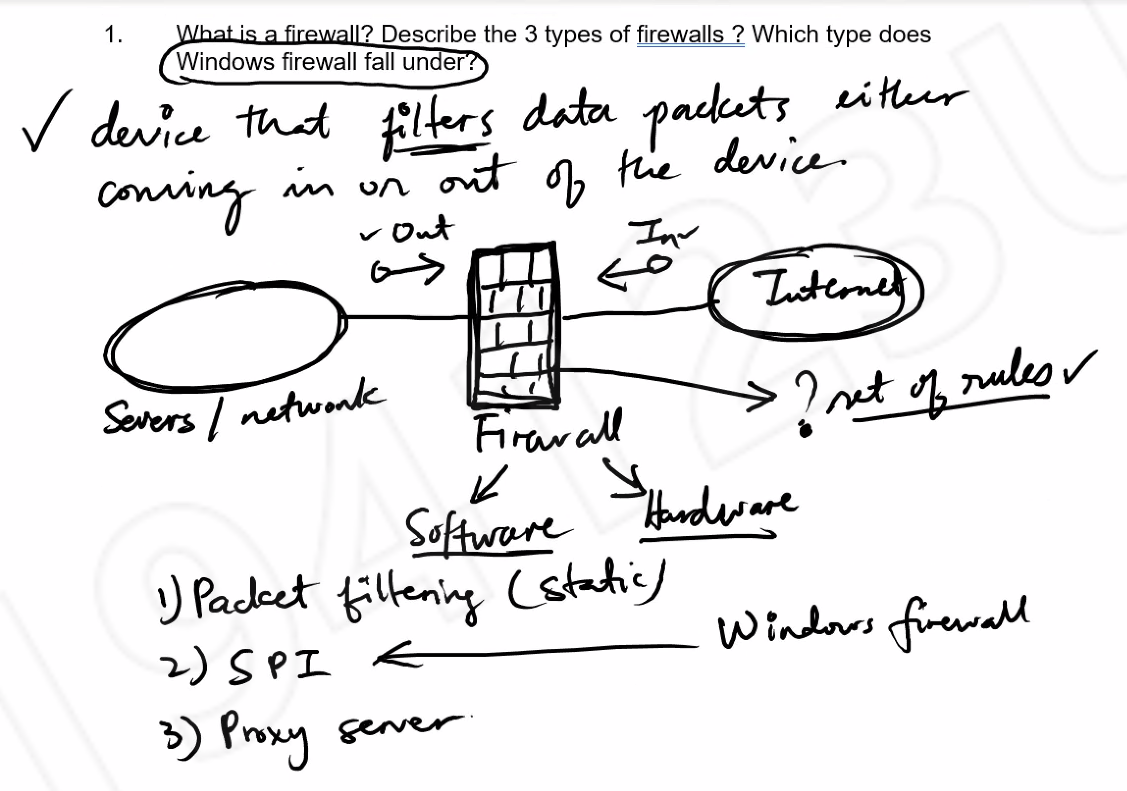 1. What is a firewall? Describe the 3 types of firewalls ? Which type does
Windows firewall fall under?
✓ device that filters data packets either
coming in or out of the device.
✓ Out
In ✓
Internet
? set of rules ✓
Severs / network
Firewall
Software
Hardware
1) Packet filtering (static)
Windows firewall
2) SPI
3) Proxy server